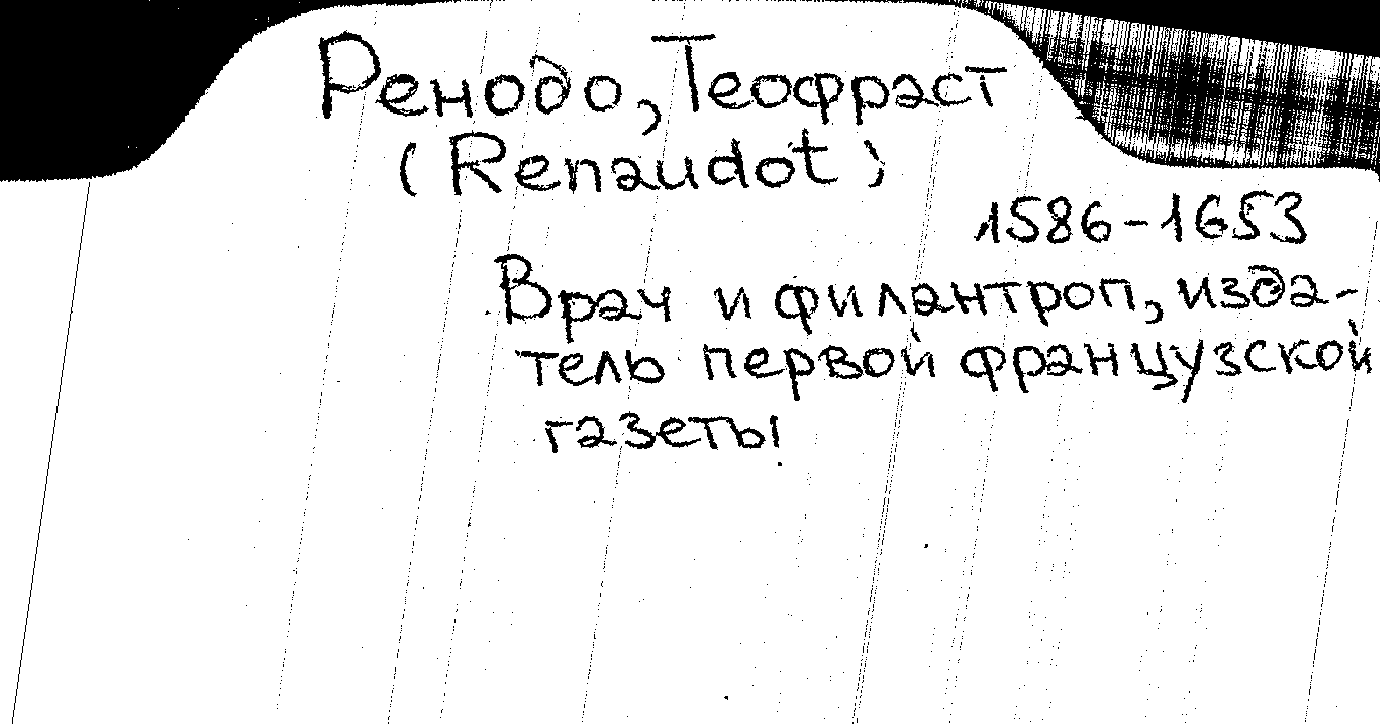 Ренодо, Теофраст
(Renaudot)
1586-1653
Врач и филантроп, изда-
тель первой французской
газеты